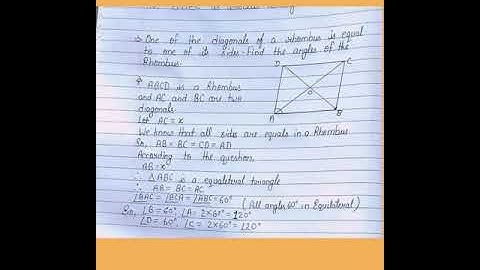 ⇒ One of the diagonals of a rhombus is equal
to one of its sides. Find the angles of the
Rhombus.
D C
O
A B
ABCD is a Rhombus
and AC and BC are two
diagonals
Let AC = x
We know that all sides are equals in a Rhombus
So, AB = BC = CD = AD
According to the question,
AB = x
∴ △ABC is a equalateral triangle
∴ AB = BC = AC
∠BAC = ∠BCA = ∠ABC = 60° (All angles 60° in Equilateral)
So, ∠B = 60°, ∠A = 2×60° = 120°
∠D = 60°, ∠C = 2×60° = 120°